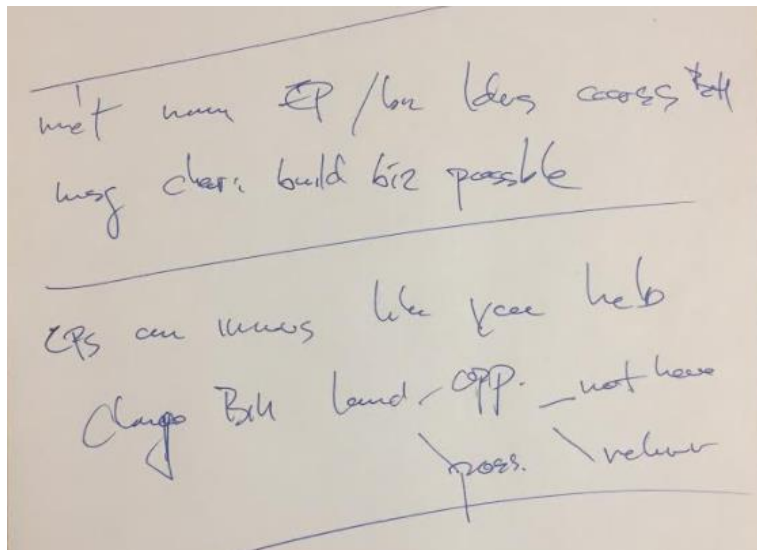 met many EP / biz ldrs across BiH
msg clear: build biz possible
EPs can innovs like you help
Change BiH land - opp. _ not have
\ poss. \ return